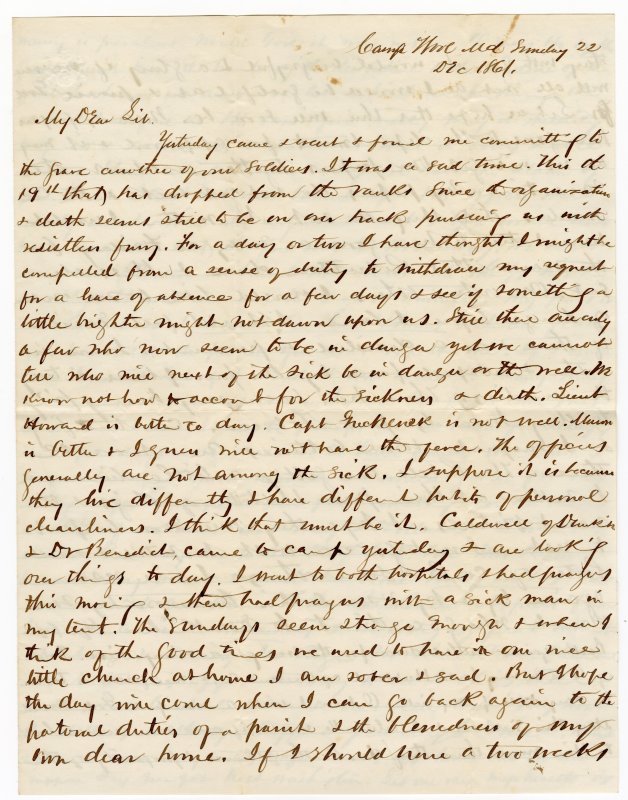 Camp Wool Md Sunday 22
Dec 1861.
My Dear Sir.
Yesterday came & went & found me committing to
the grave another of our soldiers. It was a sad time. This is
19th that has dropped from the ranks since the organization
& death seems still to be on our track pursuing us with
resistless fury. For a day or two I have thought I might be
compelled from a sense of duty to withdraw my request
for a leave of absence for a few days & see if something a
little brighter might not dawn upon us. Still there are only
a few who now seem to be in danger yet we cannot
tell who will next of the sick be in danger or the well. We
know not how to account for the sickness & death. Lieut
Howard is better to day. Capt is not well. Mason
is better & I guess will not have the fever. The officers
generally are not among the sick. I suppose it is because
they live differently & have different habits of personal
cleanliness. I think that must be it. Caldwell of
& Dr Benedict, came to camp yesterday & are looking
over things to day. I went to both hospitals & had prayers
this morning & then had prayers with a sick man in
my tent. The Sundays seem strange enough & when I
think of the good times we used to have in our nice
little church at home I am sober & sad. But I hope
the day will come when I can go back again to the
pastoral duties of a parish & the blessedness of my
own dear home. If I should have a two weeks